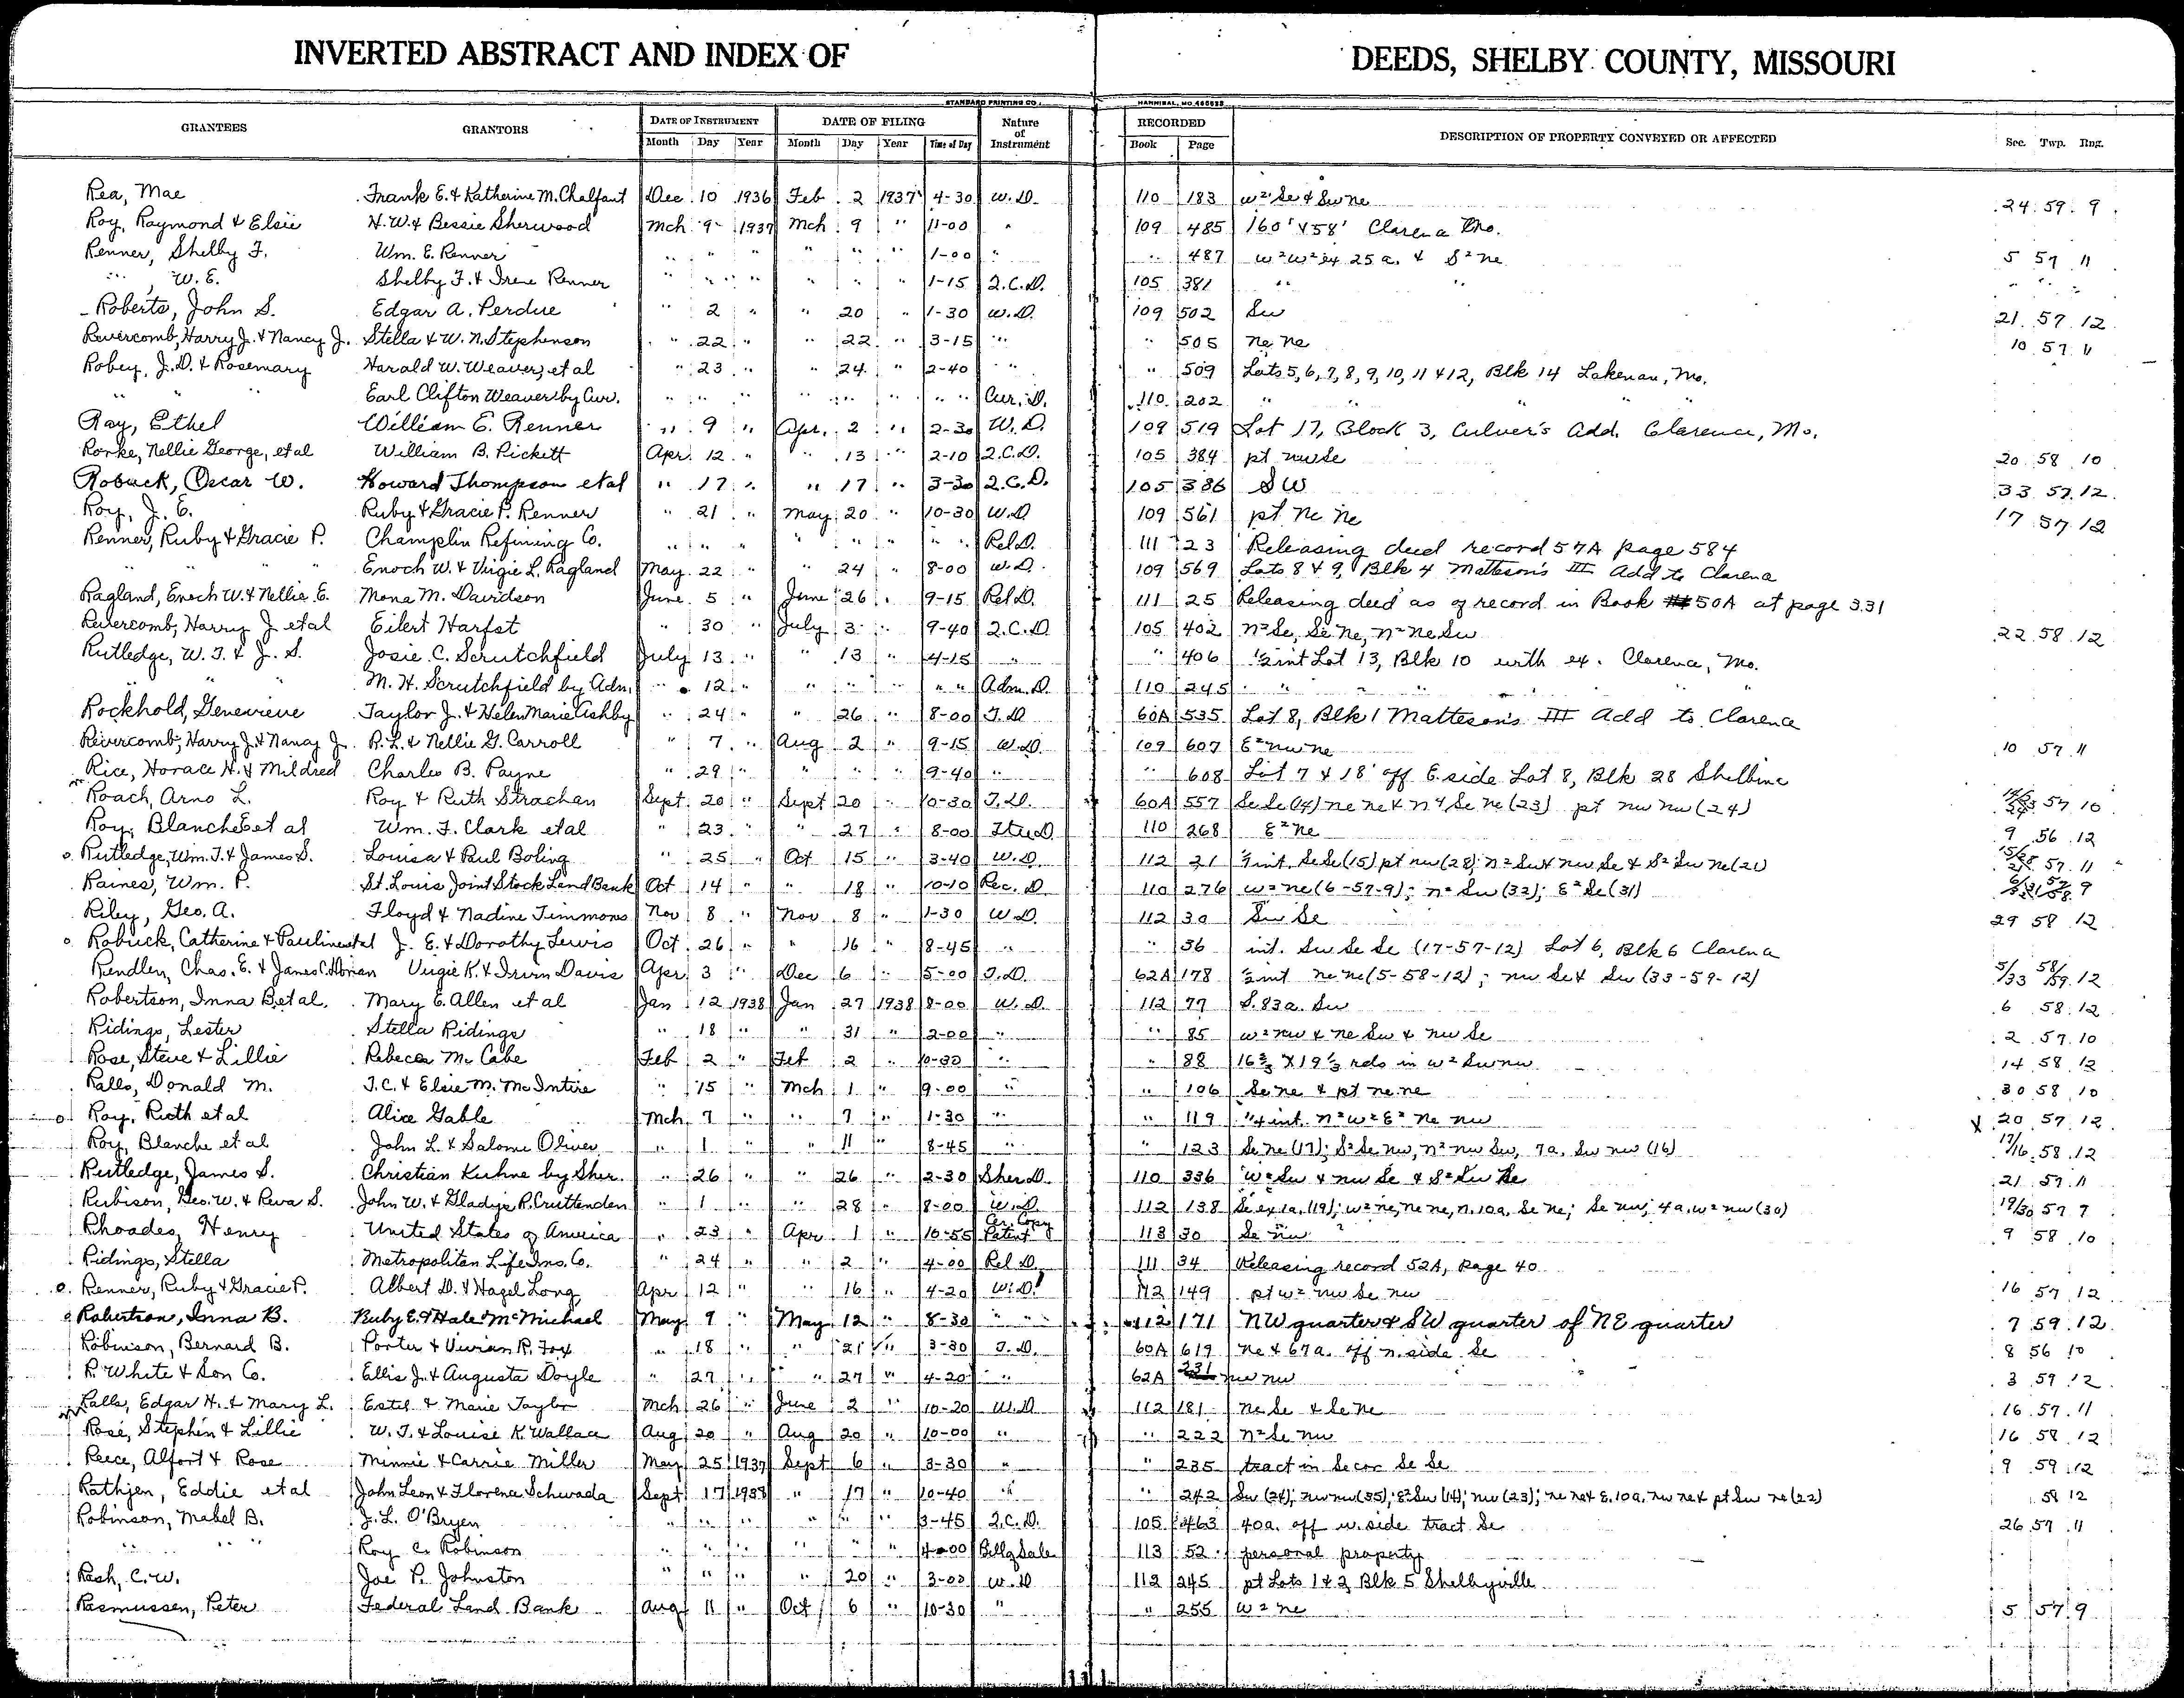 INVERTED ABSTRACT AND INDEX OF DEEDS, SHELBY COUNTY, MISSOURI
STANDARD PRINTING CO., HANNIBAL, MO.
GRANTEES GRANTORS DATE OF INSTRUMENT DATE OF FILING Nature of Instrument RECORDED DESCRIPTION OF PROPERTY CONVEYED OR AFFECTED Sec. Twp. Rng.
Month Day Year Month Day Year Time of Day Book Page
Rea, Mae Frank E. & Katherine M. Chalfant Dec 10 1936 Feb 2 1937 4-30 W.D. 110 183 W² Se & Sw ne 24 59 9
Roy, Raymond & Elsie H.W. & Bessie Sherwood Mch 9 1937 Mch 9 " 11-00 " 109 485 160' x 58' Clarence Mo.
Renner, Shelby F. Wm. E. Renner " " " " " " 1-00 " " 487 W² W² 25 a. & S² ne 5 57 11
" W.E. Shelby F. & Irene Renner " " " " " " 1-15 Q.C.D. 105 381 " " " " "
Roberts, John S. Edgar A. Perdue " 2 " " 20 " 1-30 W.D. 109 502 Sw 21 57 12
Revercomb, Harry J. & Nancy J. Stella & W.N. Stephenson " 22 " " 22 " 3-15 " " 505 ne ne 10 57 11
Robey, J.D. & Rosemary Harald W. Weaver, et al " 23 " " 24 " 2-40 " " 509 Lots 5, 6, 7, 8, 9, 10, 11 & 12, Blk 14 Lakenan, Mo.
" " Earl Clifton Weaver by Cur. " " " " " " " " Cur. D. 110 202 " " " "
Ray, Ethel William E. Renner " 9 " Apr. 2 " 2-30 W.D. 109 519 Lot 17, Block 3, Culver's Add. Clarence, Mo.
Rorke, Nellie George, et al William B. Pickett Apr. 12 " " 13 " 2-10 Q.C.D. 105 384 pt nw Se 20 58 10
Robuck, Oscar W. Howard Thompson et al " 17 " " 17 " 3-30 Q.C.D. 105 386 SW 33 57 12
Roy, J.E. Ruby & Gracie P. Renner " 21 " May 20 " 10-30 W.D. 109 561 pt ne ne 17 57 12
Renner, Ruby & Gracie P. Champlin Refining Co. " " " " " " " " Rel D. 111 23 Releasing deed record 57A page 584
" " " Enoch W. & Virgie L. Ragland May 22 " " 24 " 8-00 W.D. 109 569 Lots 8 & 9, Blk 4 Matteson's III Add to Clarence
Ragland, Enoch W. & Nellie E. Mona M. Davidson June 5 " June 26 " 9-15 Rel D. 111 25 Releasing deed as of record in Book 50A at page 331
Revercomb, Harry J. et al Eilert Harfst " 30 " July 3 " 9-40 Q.C.D. 105 402 n² Se, Se ne, n² ne Sw 22 58 12
Rutledge, W.T. & J.S. Josie C. Scrutchfield July 13 " " 13 " 4-15 " " 406 int Lot 13, Blk 10 with ex. Clarence, Mo.
" " M.H. Scrutchfield by Adm. " 12 " " " " " " Adm. D. 110 245 " " " " "
Rockhold, Genevieve Taylor J. & Helen Marie Ashby " 24 " " 26 " 8-00 T.D. 60A 535 Lot 8, Blk 1 Matteson's III Add to Clarence
Revercomb, Harry J. & Nancy J. R.L. & Nellie G. Carroll " 7 " Aug 2 " 9-15 W.D. 109 607 E² nw ne 10 57 11
Rice, Horace H. & Mildred Charles B. Payne " 29 " " " " 9-40 " " 608 Lot 7 & 18' off E side Lot 8, Blk 28 Shelbina
Roach, Arno L. Roy & Ruth Strachan Sept 20 " Sept 20 " 10-30 T.D. 60A 557 Se Se (14) ne ne & n Se ne (23) pt nw nw (24) 57 10
Roy, Blanche E et al Wm. F. Clark et al " 23 " " 27 " 8-00 110 268 E² ne 9 56 12
Rutledge, Wm. T. & James S. Louisa & Paul Boling " 25 " Oct 15 " 3-40 W.D. 112 21 int. Se Se (15) pt nw (28); n² Sw & nw Se & S² Sw ne (21) 57 11
Raines, Wm. P. St. Louis Joint Stock Land Bank Oct 14 " " 18 " 10-10 Rec. D. 110 276 W² ne (6-57-9); n² Sw (32); E² Se (31) 9
Riley, Geo. A. Floyd & Nadine Timmons Nov 8 " Nov 8 " 1-30 W.D. 112 30 Sw Se 29 58 12
Robuck, Catherine & Pauline et al J.E. & Dorothy Lewis Oct 26 " " 16 " 8-45 " " 36 int. Sw Se Se (17-57-12) Lot 6, Blk 6 Clarence
Rendlen, Chas. E. & James C. Dorian Virgie K. & Irvin Davis Apr 3 " Dec 6 " 5-00 T.D. 62A 178 int ne ne (5-58-12); nw Se & Sw (33-59-12) 5/33 58/59 12
Robertson, Inna B. et al. Mary E. Allen et al Jan 12 1938 Jan 27 1938 8-00 W.D. 112 77 S. 83a. Sw 6 58 12
Ridings, Lester Stella Ridings " 18 " " 31 " 2-00 " " 85 W² nw & ne Sw & nw Se 2 57 10
Rose, Steve & Lillie Rebecca McCabe Feb 2 " Feb 2 " 10-30 " " 88 16⅔ x 19⅓ rds in W² Sw nw 14 58 12
Ralls, Donald M. T.C. & Elsie M. McIntire " 15 " Mch 1 " 9-00 " " 106 Se ne & pt ne ne 30 58 10
Roy, Ruth et al Alice Gable Mch 7 " " 7 " 1-30 " " 119 ¼ int. n² W² E² ne nw x 20 57 12
Roy, Blanche et al John L. & Salome Oliver " 1 " " 11 " 8-45 " " 123 Se ne (17); S² Se nw, n² nw Sw, 7a. Sw nw (16) 17/16 58 12
Rutledge, James S. Christian Kuhne by Sher. " 26 " " 26 " 2-30 Sher D. 110 336 W² Sw & nw Se & S² Sw ne 21 57 11
Rubison, Geo. W. & Reva S. John W. & Gladys R. Cruttenden " 1 " " 28 " 8-00 W.D. 112 138 Se ex 1a. (19); W² ne, ne ne, n. 10a. Se ne; Se nw; 4a. W² nw (30) 19/30 57 9
Rhoades, Henry United States of America " 23 " Apr 1 " 10-55 Cer. Copy of Patent 113 30 Se nw 9 58 10
Ridings, Stella Metropolitan Life Ins. Co. " 24 " " 2 " 4-00 Rel D. 111 34 Releasing record 52A, page 40
Renner, Ruby & Gracie P. Albert D. & Hazel Long Apr 12 " " 16 " 4-20 W.D. 112 149 pt W² nw Se nw 16 57 12
Robertson, Inna B. Ruby E. & Hale McMichael May 9 " May 12 " 8-30 " 112 171 NW quarter & SW quarter of NE quarter 7 59 12
Robinson, Bernard B. Porter & Vivian R. Fox " 18 " " 21 " 3-30 T.D. 60A 619 ne & 67a. off n. side Se 8 56 10
R. White & Son Co. Ellis J. & Augusta Doyle " 27 " " 27 " 4-20 " 62A 231 nw nw 3 59 12
Ralls, Edgar H. & Mary L. Estel & Marie Taylor Mch 26 " June 2 " 10-20 W.D. 112 181 ne Se & Se ne 16 57 11
Rose, Stephen & Lillie W.T. & Louise K. Wallace Aug 20 " Aug 20 " 10-00 " " 222 n² Se nw 16 58 12
Reece, Alfort & Rose Minnie & Carrie Miller May 25 1937 Sept 6 " 3-30 " " 235 tract in Se cor Se Se 9 59 12
Rathjen, Eddie et al John Leon & Florena Schwada Sept 17 1938 " 17 " 10-40 " " 242 Sw (24); nw nw (35); E² Sw (14); nw (23); ne ne & E. 10a. nw ne & pt Sw ne (22) 58 12
Robinson, Mabel B. J.L. O'Bryen " " " " " " 3-45 Q.C.D. 105 463 40a. off w. side tract Se 26 57 11
" " " Roy C. Robinson " " " " " " 4-00 Bill of Sale 113 52 personal property
Rash, C.W. Joe P. Johnston " " " " 20 " 3-00 W.D 112 245 pt Lots 1 & 2 Blk 5 Shelbyville
Rasmussen, Peter Federal Land Bank Aug 11 " Oct 6 " 10-30 " " 255 W² ne 5 57 9